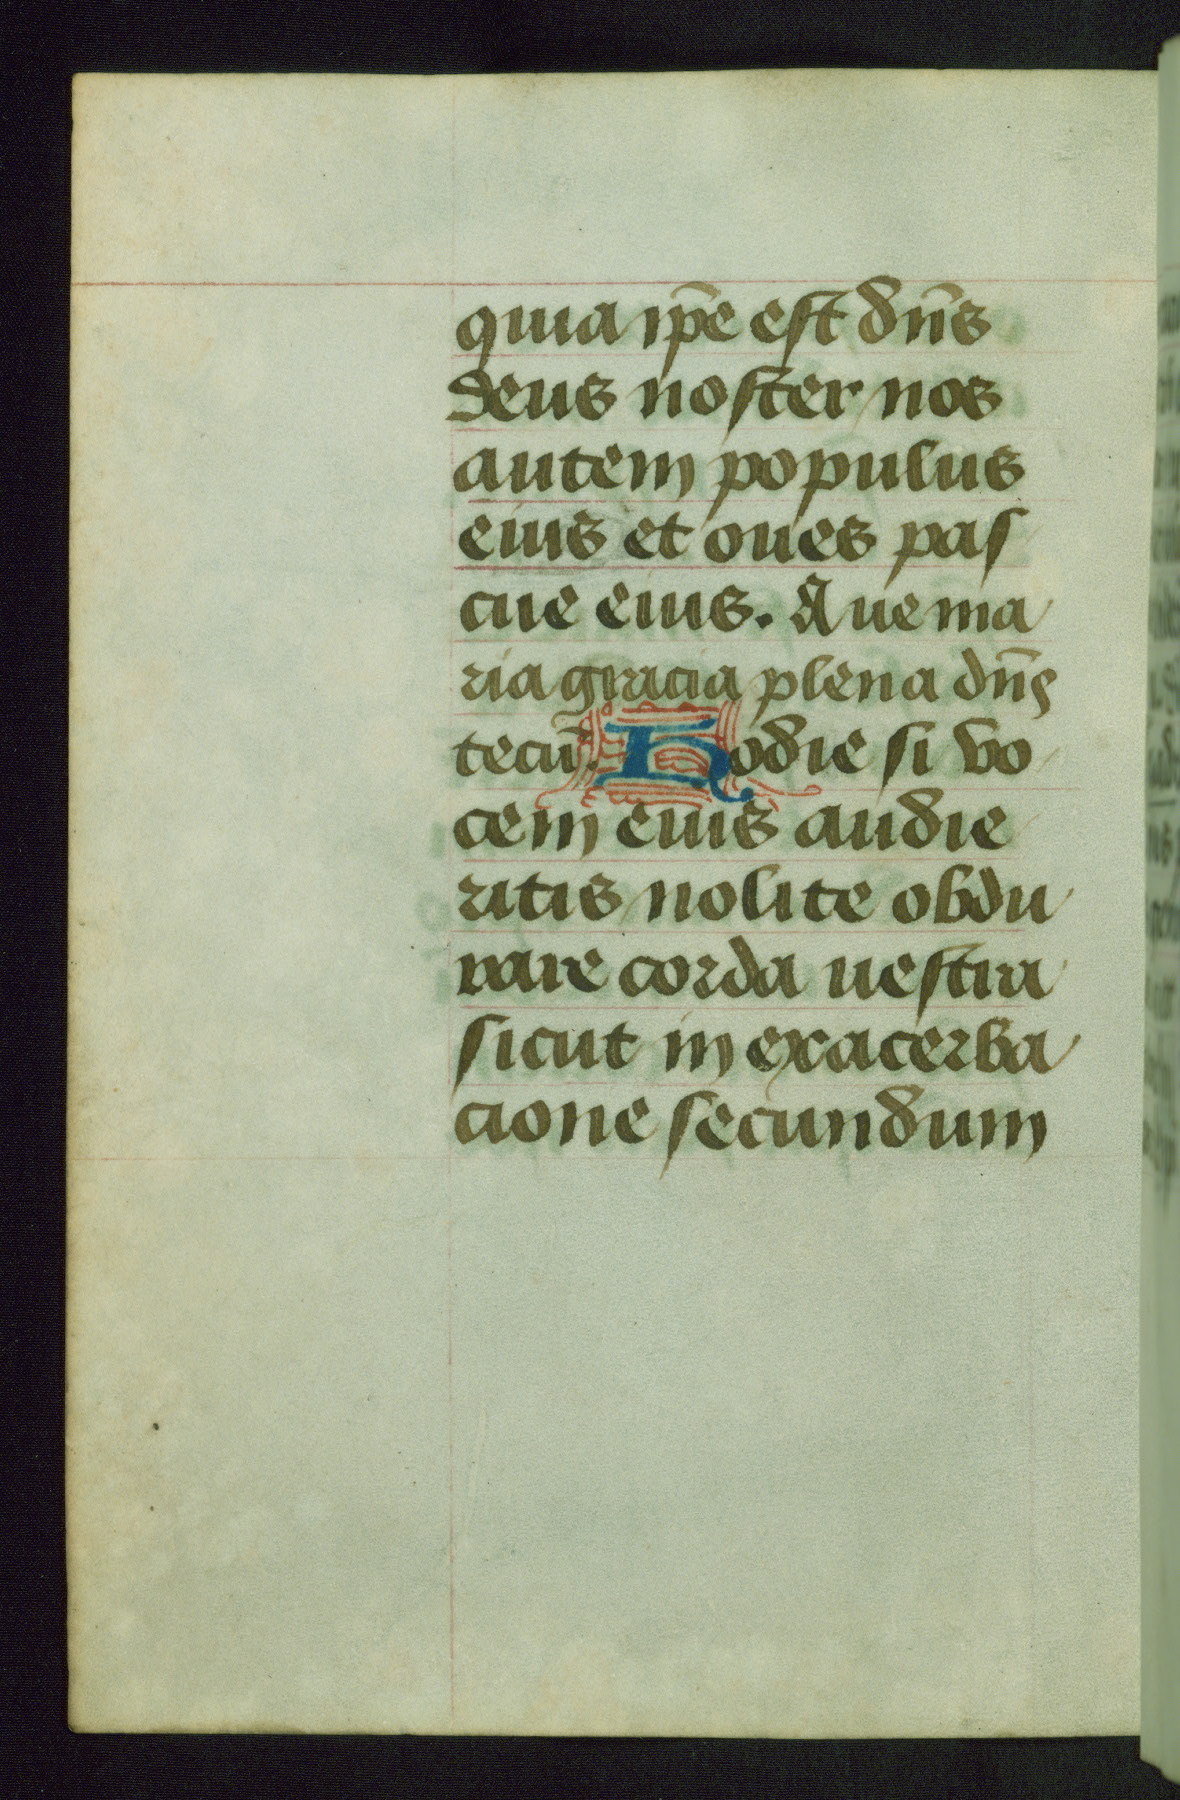 quia ip̄e est dn̄s
deus noster nos
autem populus
eius et oues pas
cue eius. Aue ma
ria gracia plena dn̄s
tecū. Hodie si vo
cem eius audie
ritis nolite obdu
rare corda uestra
sicut in exacerba
cione secundum